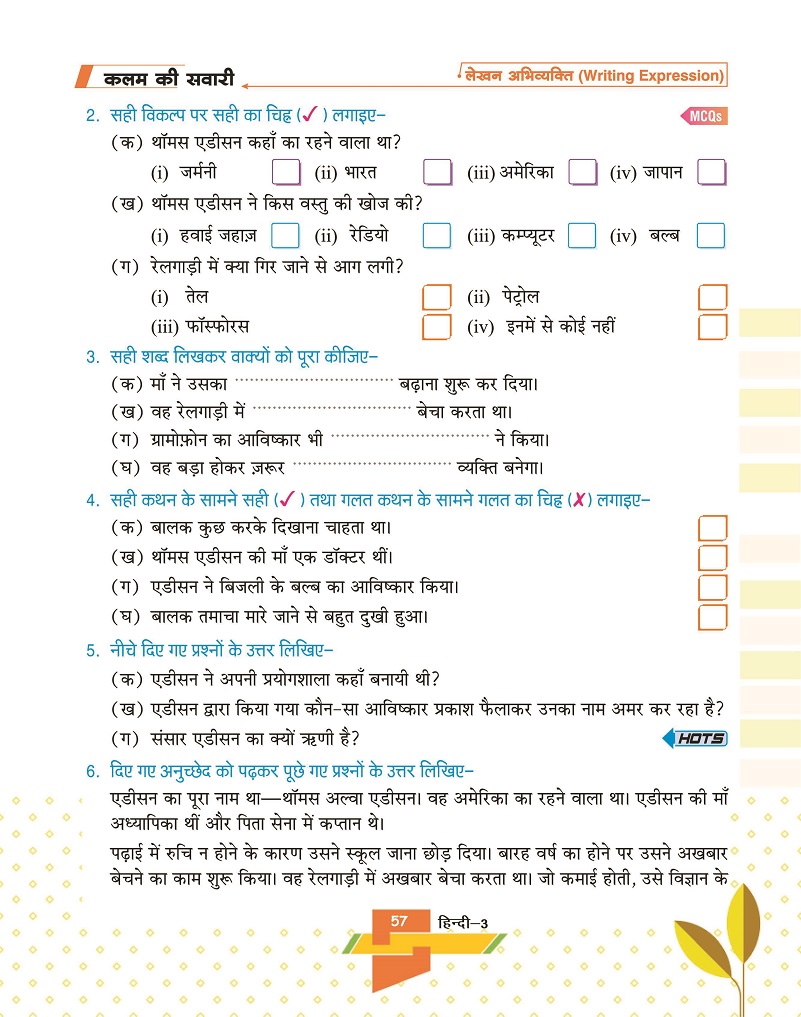 कलम की सवारी
लेखन अभिव्यक्ति (Writing Expression)
2. सही विकल्प पर सही का चिह्न (✓) लगाइए–
MCQs
(क) थॉमस एडीसन कहाँ का रहने वाला था?
(i) जर्मनी (ii) भारत (iii) अमेरिका (iv) जापान
(ख) थॉमस एडीसन ने किस वस्तु की खोज की?
(i) हवाई जहाज़ (ii) रेडियो (iii) कम्प्यूटर (iv) बल्ब
(ग) रेलगाड़ी में क्या गिर जाने से आग लगी?
(i) तेल (ii) पेट्रोल
(iii) फॉस्फोरस (iv) इनमें से कोई नहीं
3. सही शब्द लिखकर वाक्यों को पूरा कीजिए–
(क) माँ ने उसका ................................ बढ़ाना शुरू कर दिया।
(ख) वह रेलगाड़ी में ................................ बेचा करता था।
(ग) ग्रामोफ़ोन का आविष्कार भी ................................ ने किया।
(घ) वह बड़ा होकर ज़रूर ................................ व्यक्ति बनेगा।
4. सही कथन के सामने सही (✓) तथा गलत कथन के सामने गलत का चिह्न (✗) लगाइए–
(क) बालक कुछ करके दिखाना चाहता था।
(ख) थॉमस एडीसन की माँ एक डॉक्टर थीं।
(ग) एडीसन ने बिजली के बल्ब का आविष्कार किया।
(घ) बालक तमाचा मारे जाने से बहुत दुखी हुआ।
5. नीचे दिए गए प्रश्नों के उत्तर लिखिए–
(क) एडीसन ने अपनी प्रयोगशाला कहाँ बनायी थी?
(ख) एडीसन द्वारा किया गया कौन-सा आविष्कार प्रकाश फैलाकर उनका नाम अमर कर रहा है?
(ग) संसार एडीसन का क्यों ऋणी है?
HOTS
6. दिए गए अनुच्छेद को पढ़कर पूछे गए प्रश्नों के उत्तर लिखिए–
एडीसन का पूरा नाम था—थॉमस अल्वा एडीसन। वह अमेरिका का रहने वाला था। एडीसन की माँ
अध्यापिका थीं और पिता सेना में कप्तान थे।
पढ़ाई में रुचि न होने के कारण उसने स्कूल जाना छोड़ दिया। बारह वर्ष का होने पर उसने अखबार
बेचने का काम शुरू किया। वह रेलगाड़ी में अखबार बेचा करता था। जो कमाई होती, उसे विज्ञान के
57
हिन्दी–3